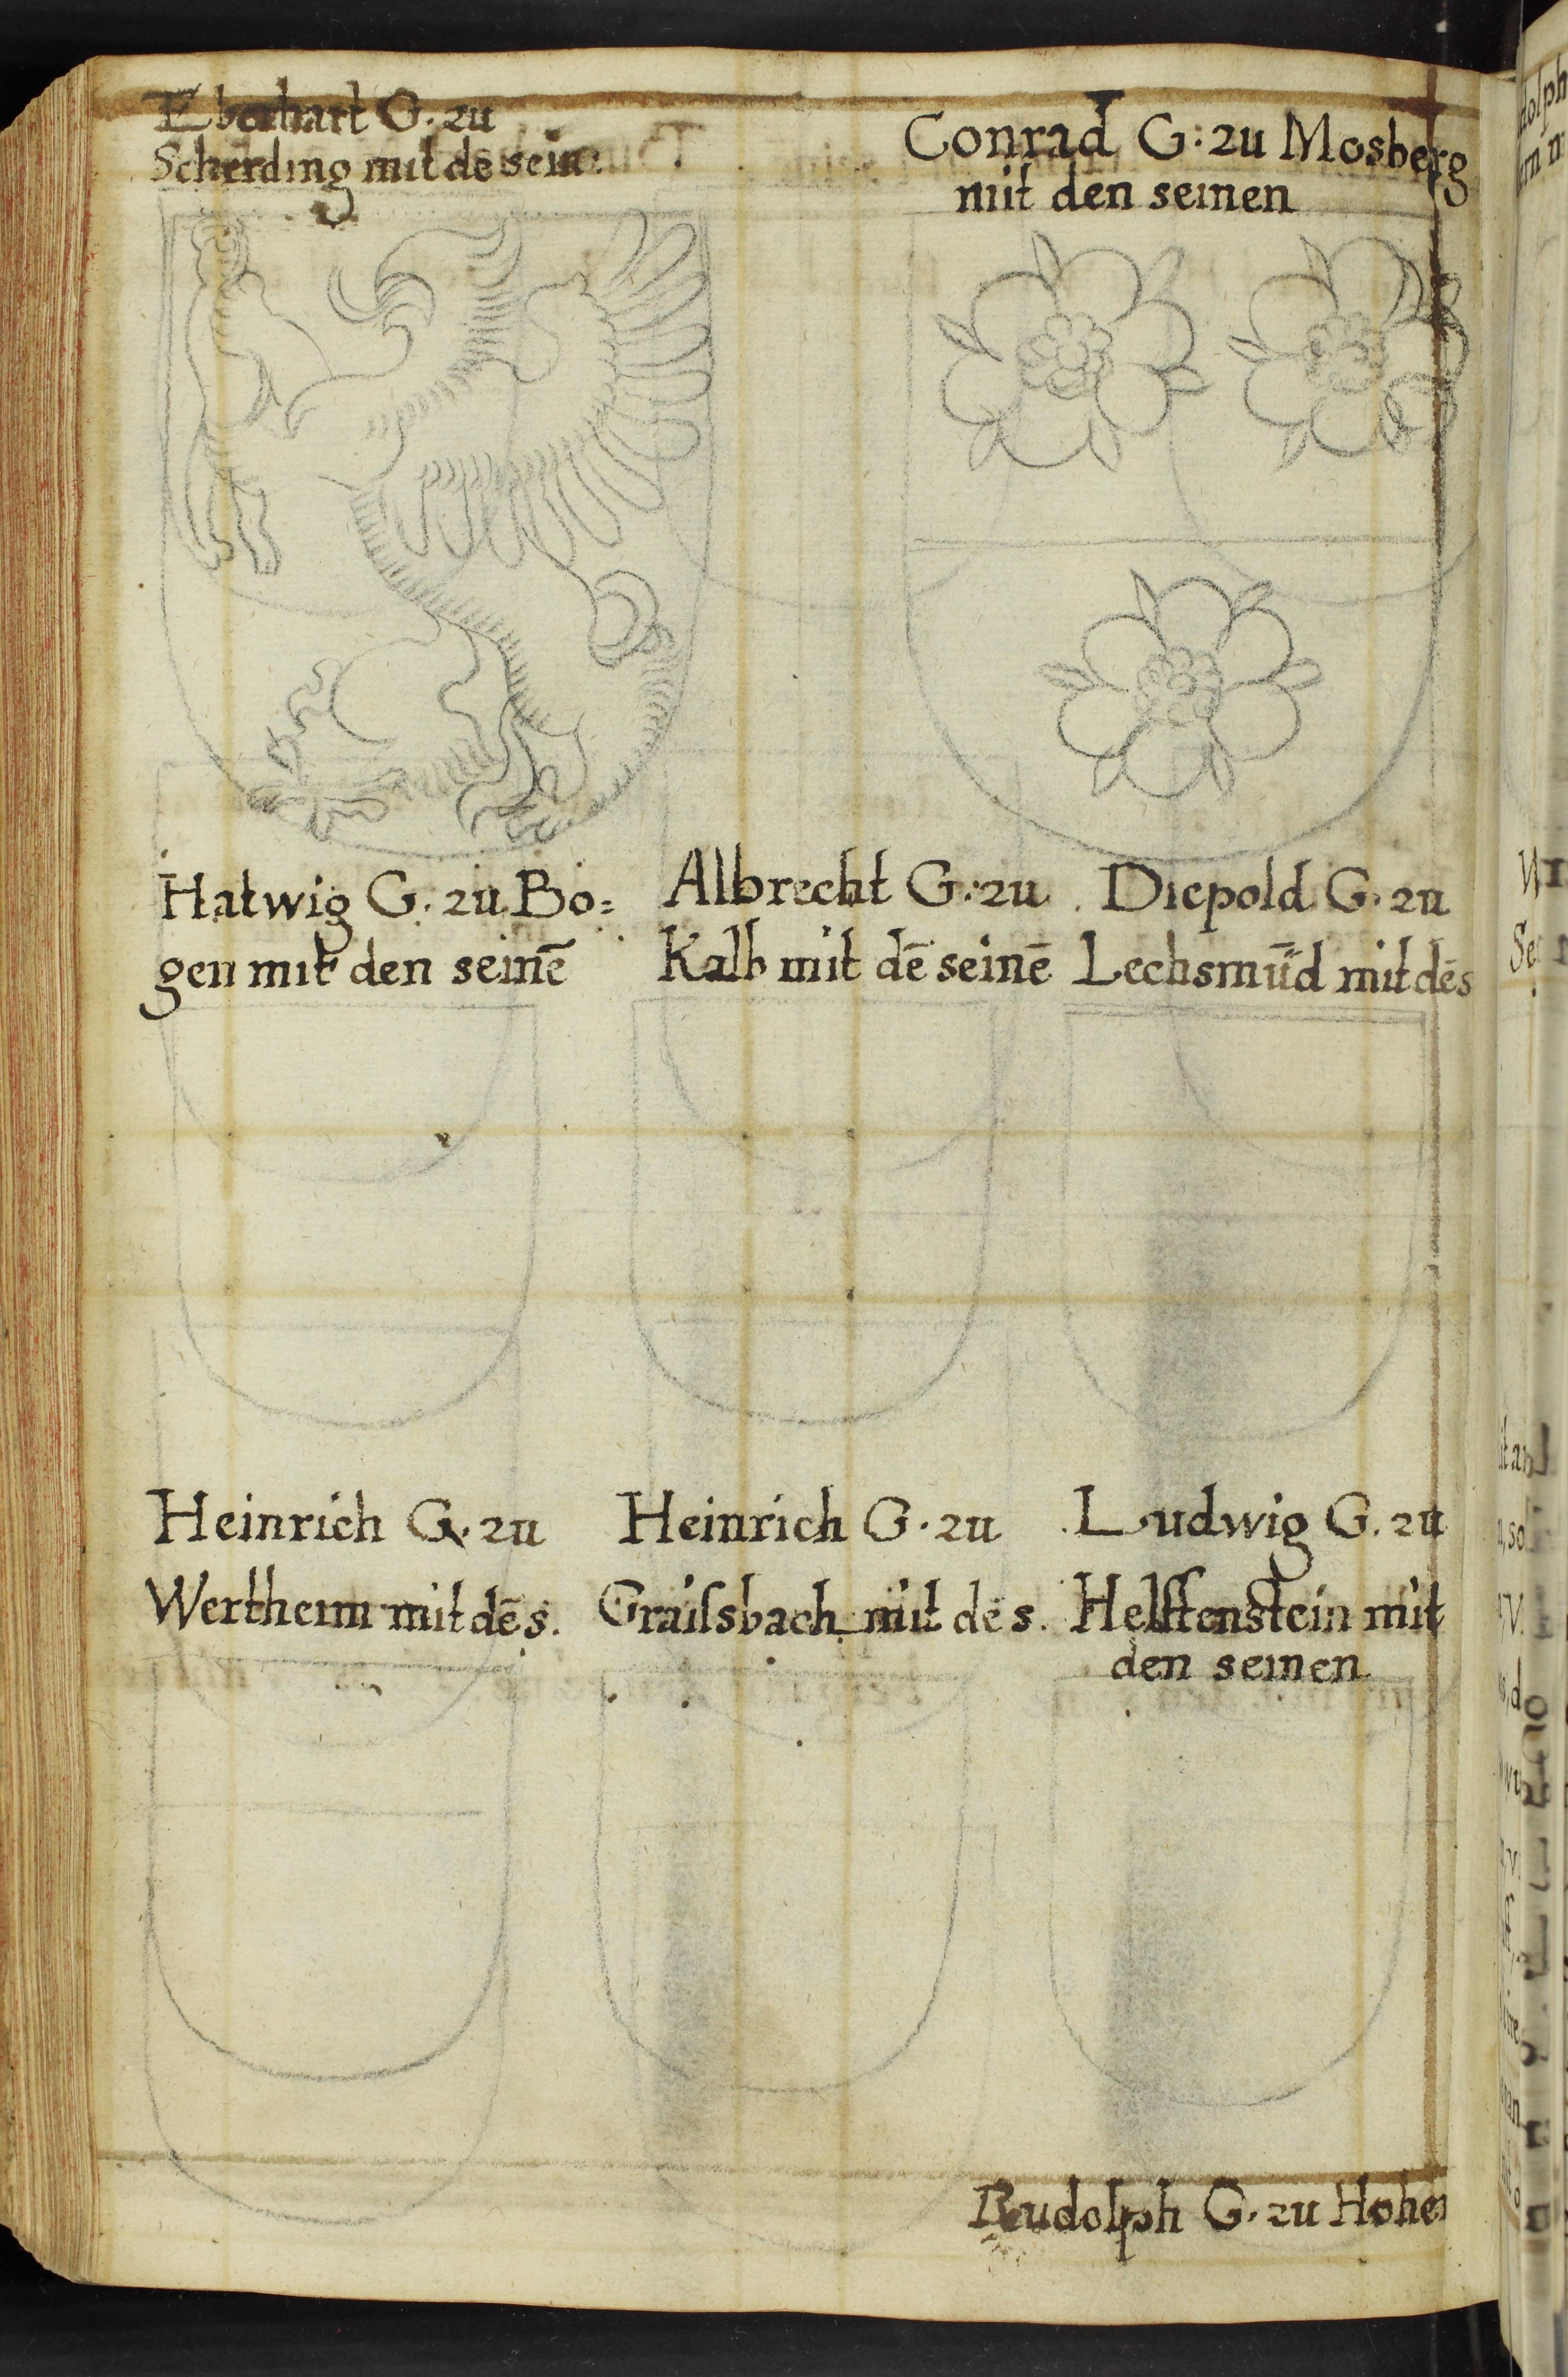 Eberhart G. zu
Scherding mit de sein:
Conrad G: zu Mosberg
mit den seinen
Hatwig G. zu Bo=
gen mit den seinē
Albrecht G: zu
Kalb mit dē seinē
Diepold G. zu
Lechsmūd mit dēs
Heinrich G. zu
Wertheim mit dēs.
Heinrich G. zu
Graiſsbach mit dēs.
Ludwig G. zu
Helffenstein mit
den seinen
Rudolph G. zu Hohen